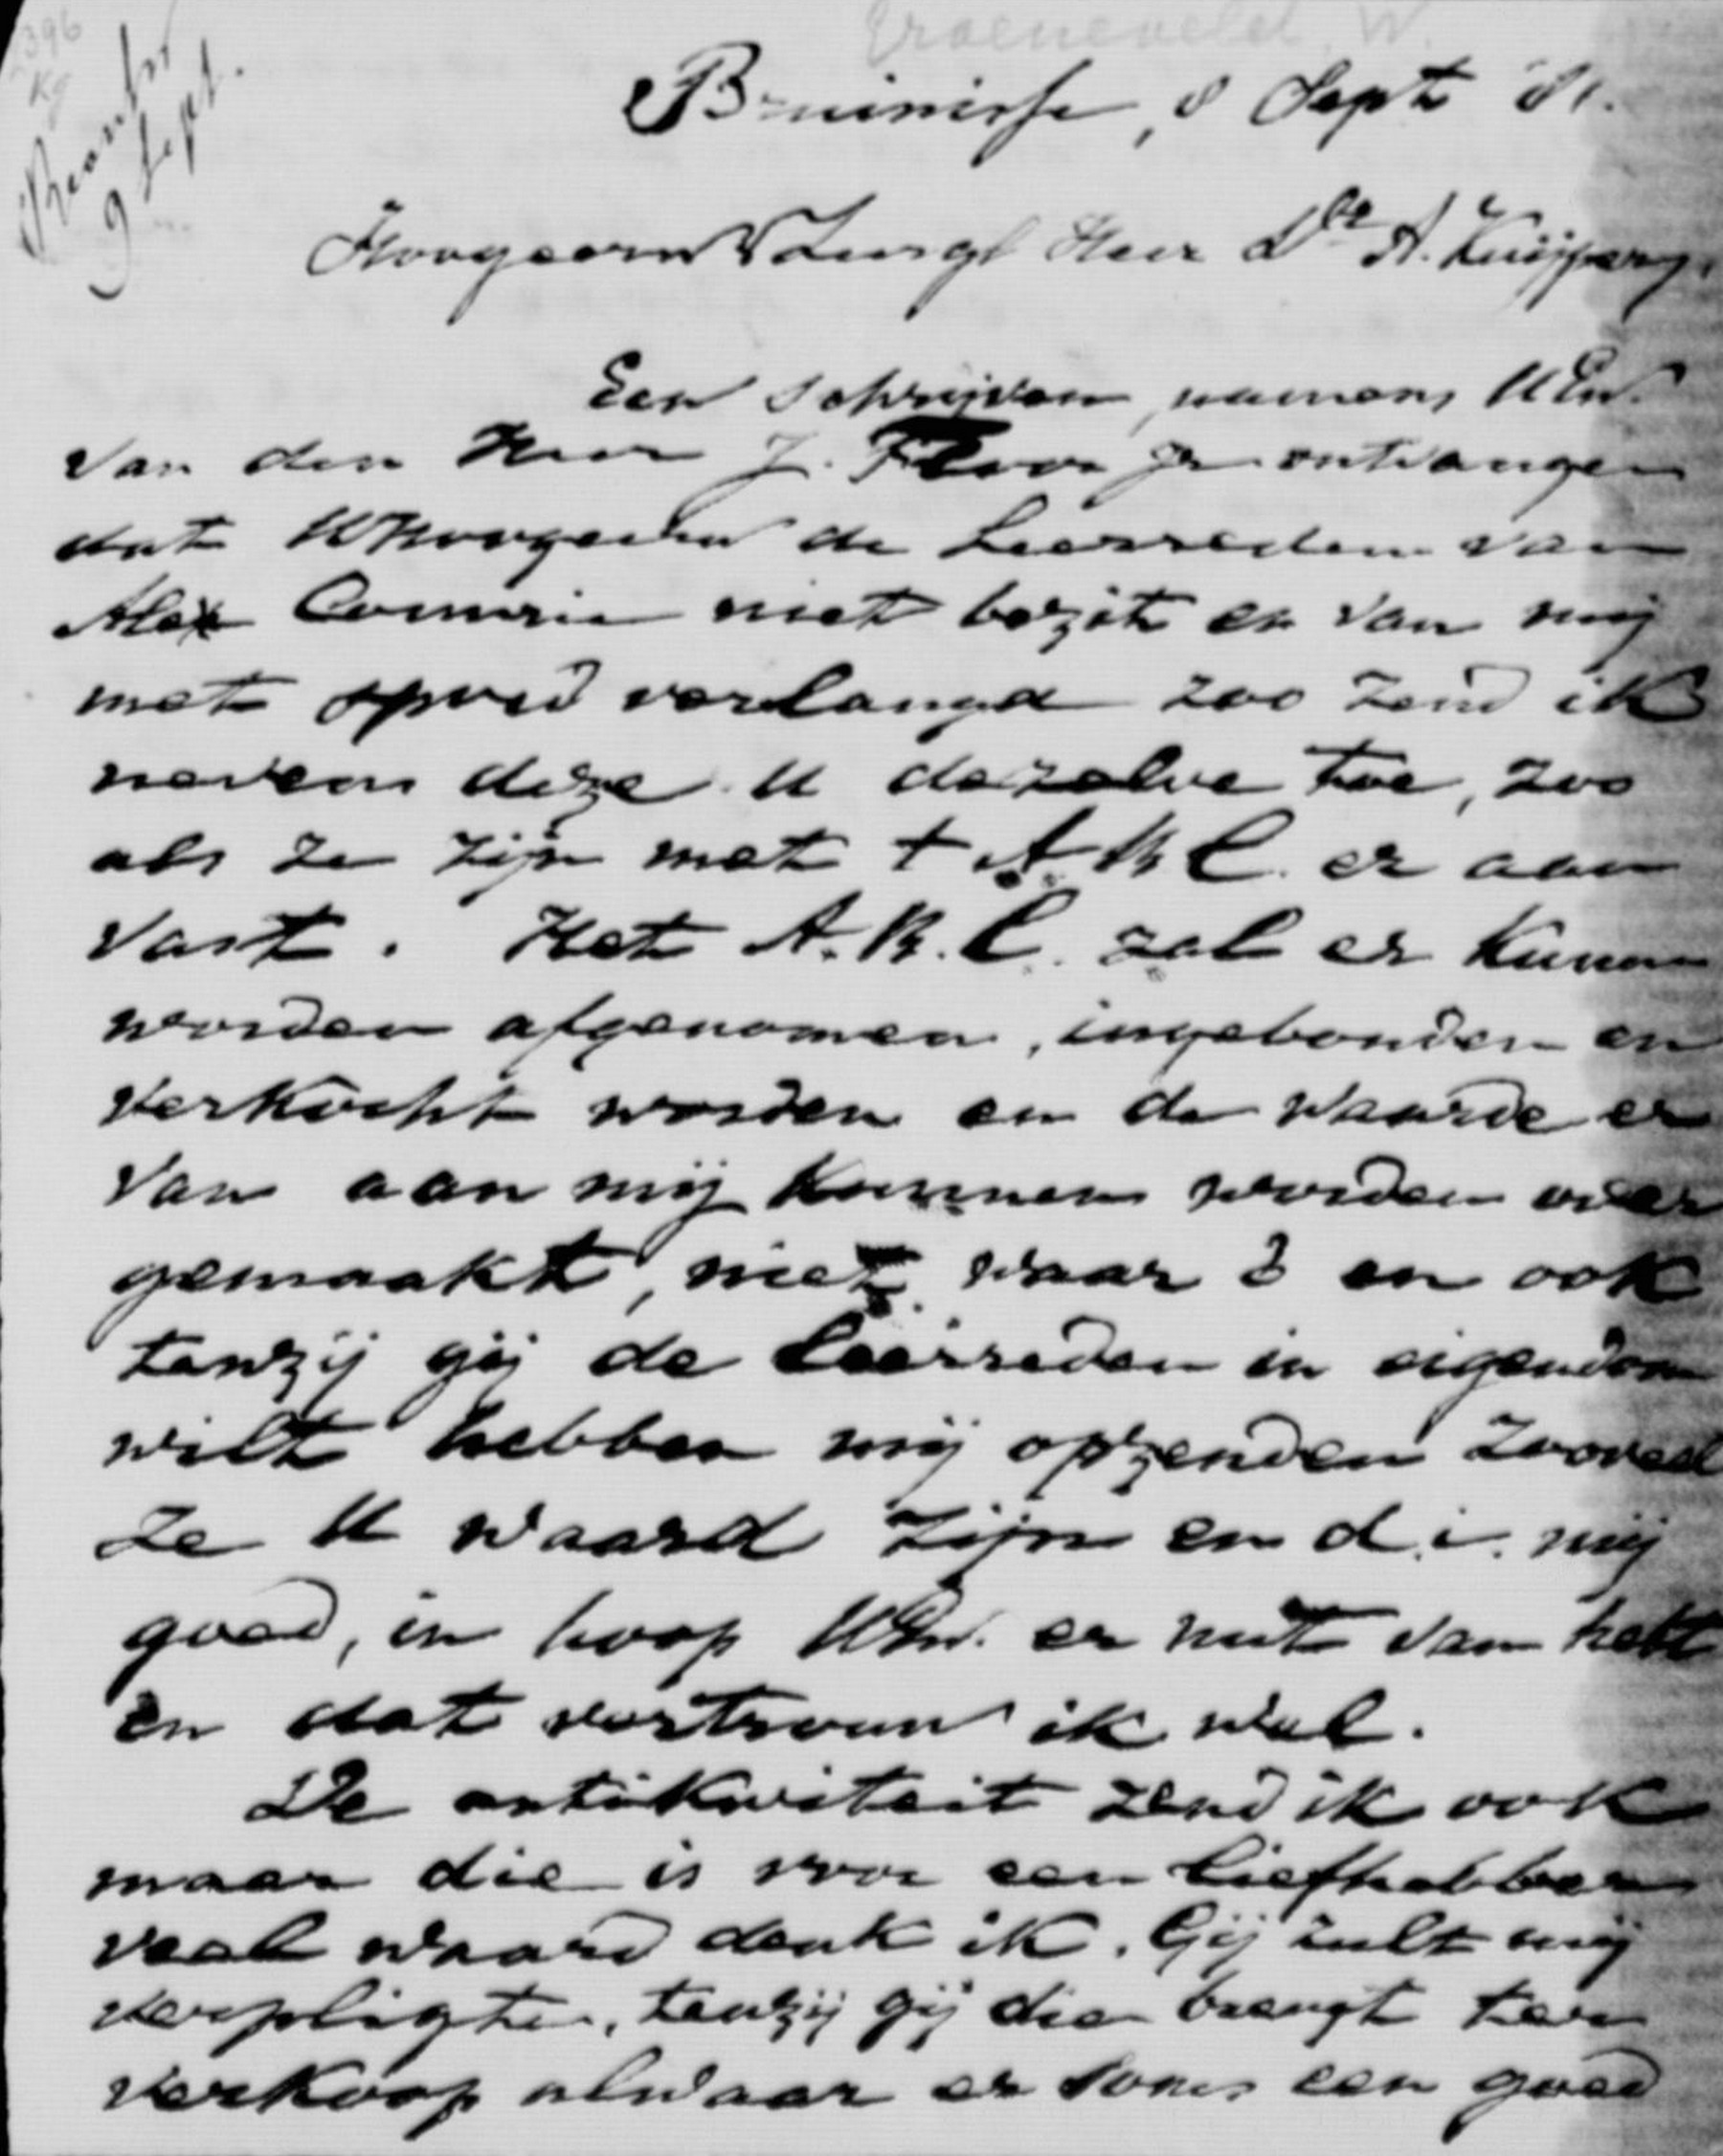 Groeneveld, W.
396
Kg
9 Sept.
Bruinisse, 8 Sept 81.
Hoogeerw & Zeergel Heer Dr A. Kuijper,
Een schrijven, namens UEw.
van den Heer J. Floor Jr ontvangen
dat UHoogeerw de Leerreden van
Alex Comrie niet bezit en van mij
met spoed verlangd zoo zend ik
nevens deze U dezelve toe, zoo
als ze zijn met t A B C. er aan
vast. Het A.B.C. zal er kunnen
worden afgenomen, ingebonden en
verkocht worden en de waarde er
van aan mij kunnen worden over
gemaakt, niet waar? en ook
tenzij gij de Leerreden in eigendom
wilt hebben mij opzenden zooveel
ze U waard zijn en d.i. mij
goed, in hoop UEw. er nut van hebt
en dat vertrouw ik wel.
De antikwiteit zend ik ook
maar die is voor een liefhebber
veel waard denk ik. Gij zult mij
verpligten, tenzij gij die brengt ter
verkoop alwaar er soms een goed